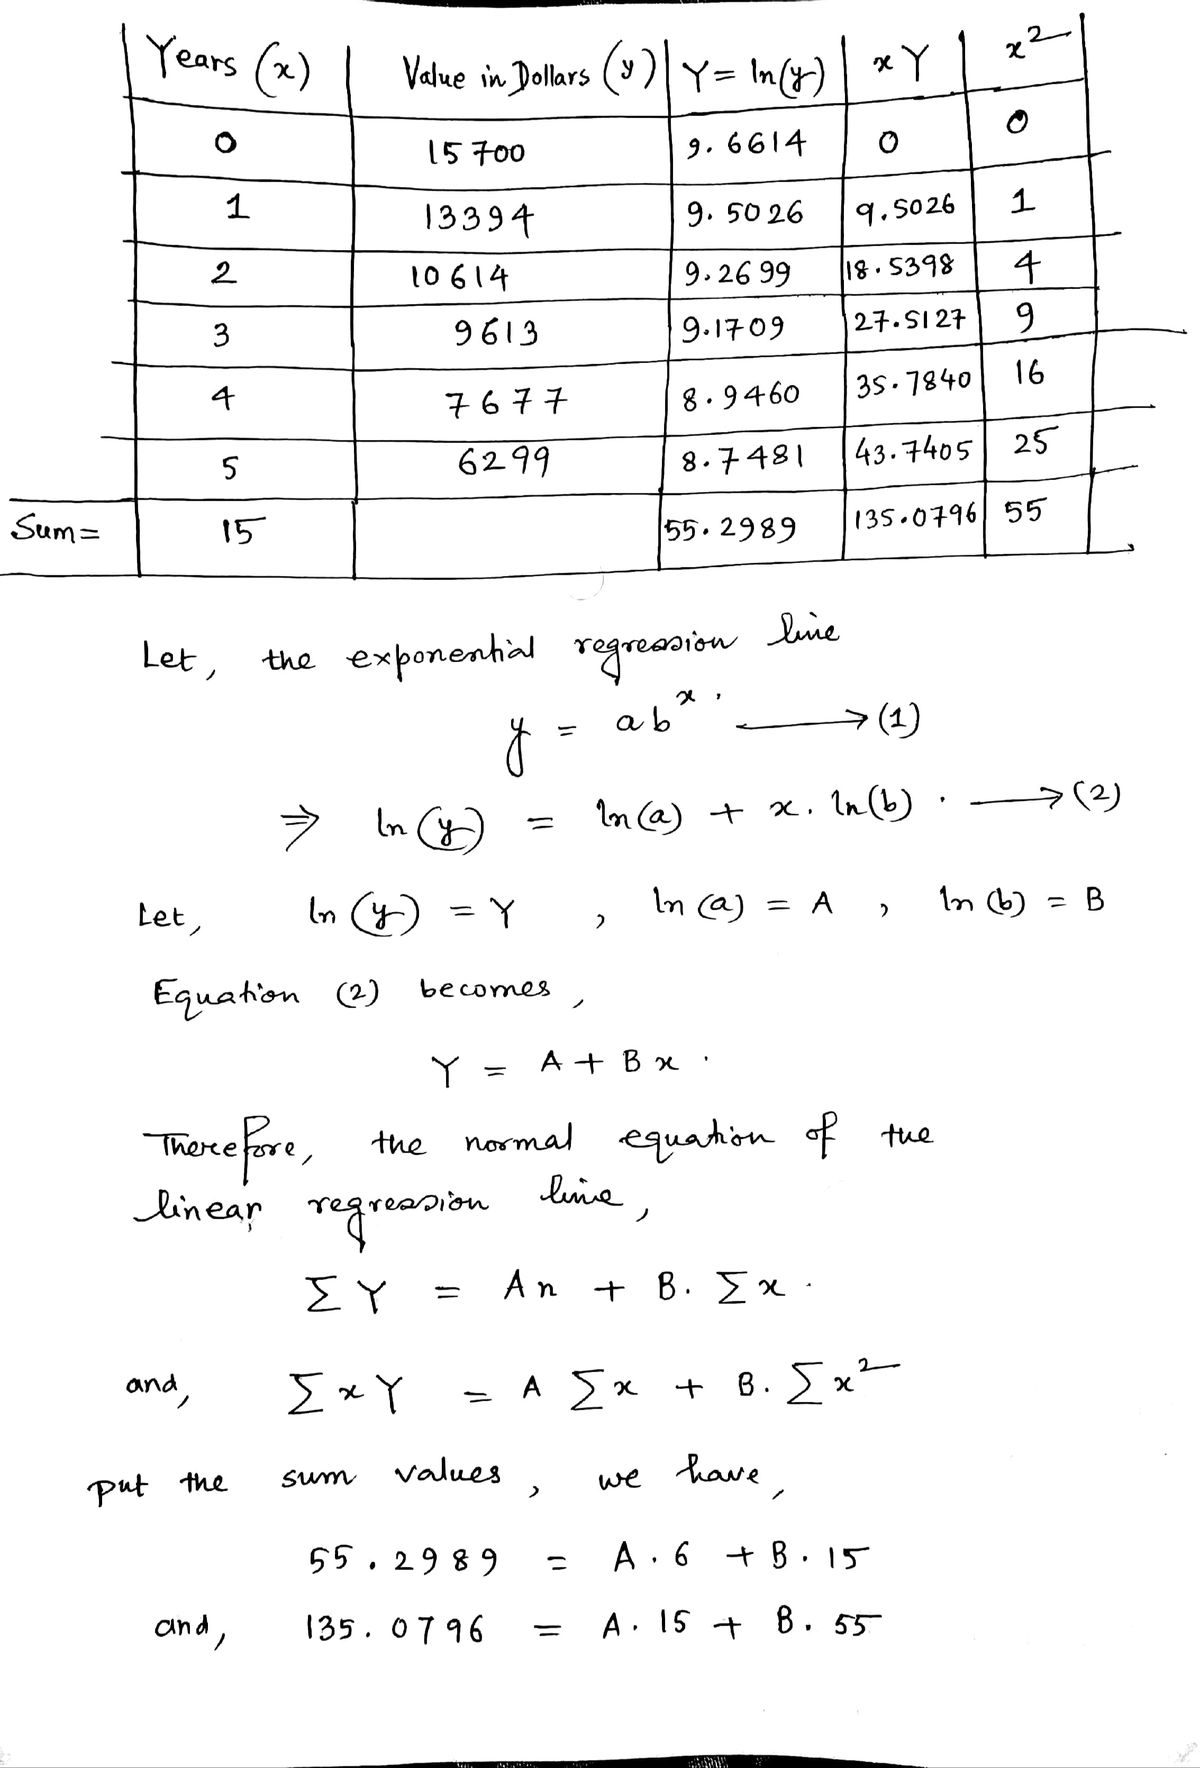 Years (x) Value in Dollars (y) Y = ln(y) xY x²
0 15700 9.6614 0 0
1 13394 9.5026 9.5026 1
2 10614 9.2699 18.5398 4
3 9613 9.1709 27.5127 9
4 7677 8.9460 35.7840 16
5 6299 8.7481 43.7405 25
Sum = 15 55.2989 135.0796 55
Let, the exponential regression line
y = abˣ. ⟶ (1)
⇒ ln(y) = ln(a) + x. ln(b). ⟶ (2)
Let, ln(y) = Y , ln(a) = A , ln(b) = B
Equation (2) becomes,
Y = A + Bx.
Therefore, the normal equation of the
linear regression line,
ΣY = An + B. Σx.
and, ΣxY = A Σx + B. Σx²
put the sum values, we have,
55.2989 = A.6 + B.15
and, 135.0796 = A.15 + B.55